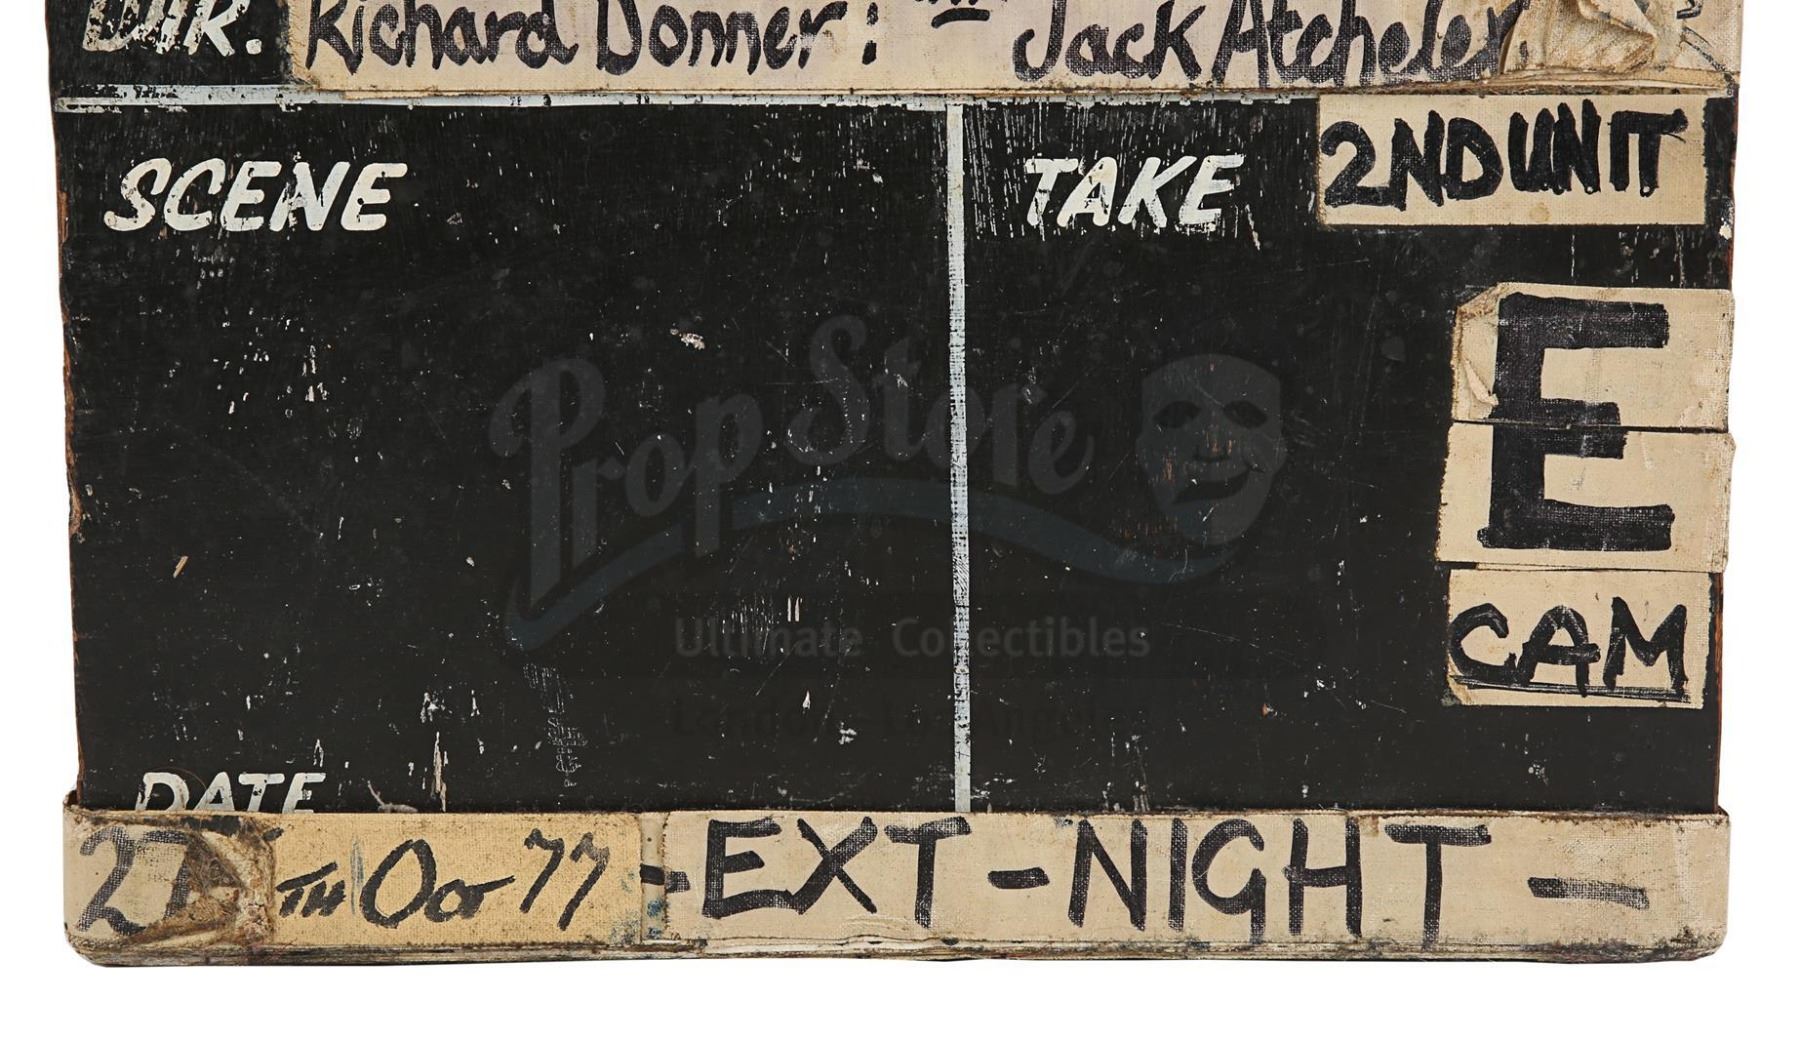 DIR. Richard Donner: Jack Atcheler
SCENE
TAKE 2ND UNIT
E
CAM
PropStore
Ultimate Collectibles
London - Los Angeles
DATE
27TH Oct 77 - EXT - NIGHT -